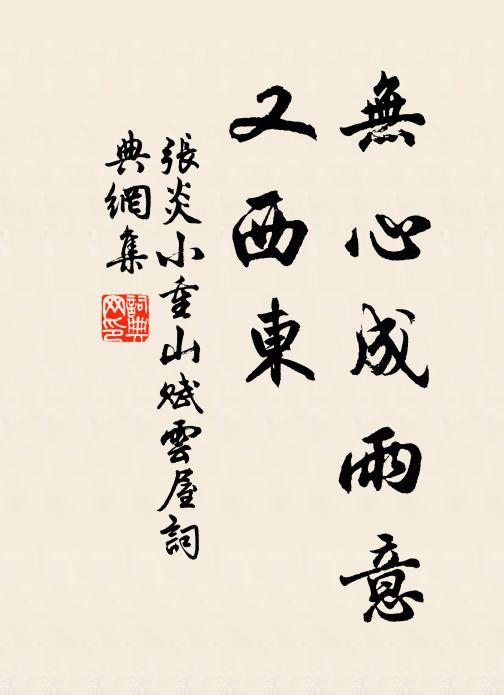 無心成雨意
又西東
張炎小重山賦雲屋詞
典網集
詞典網印